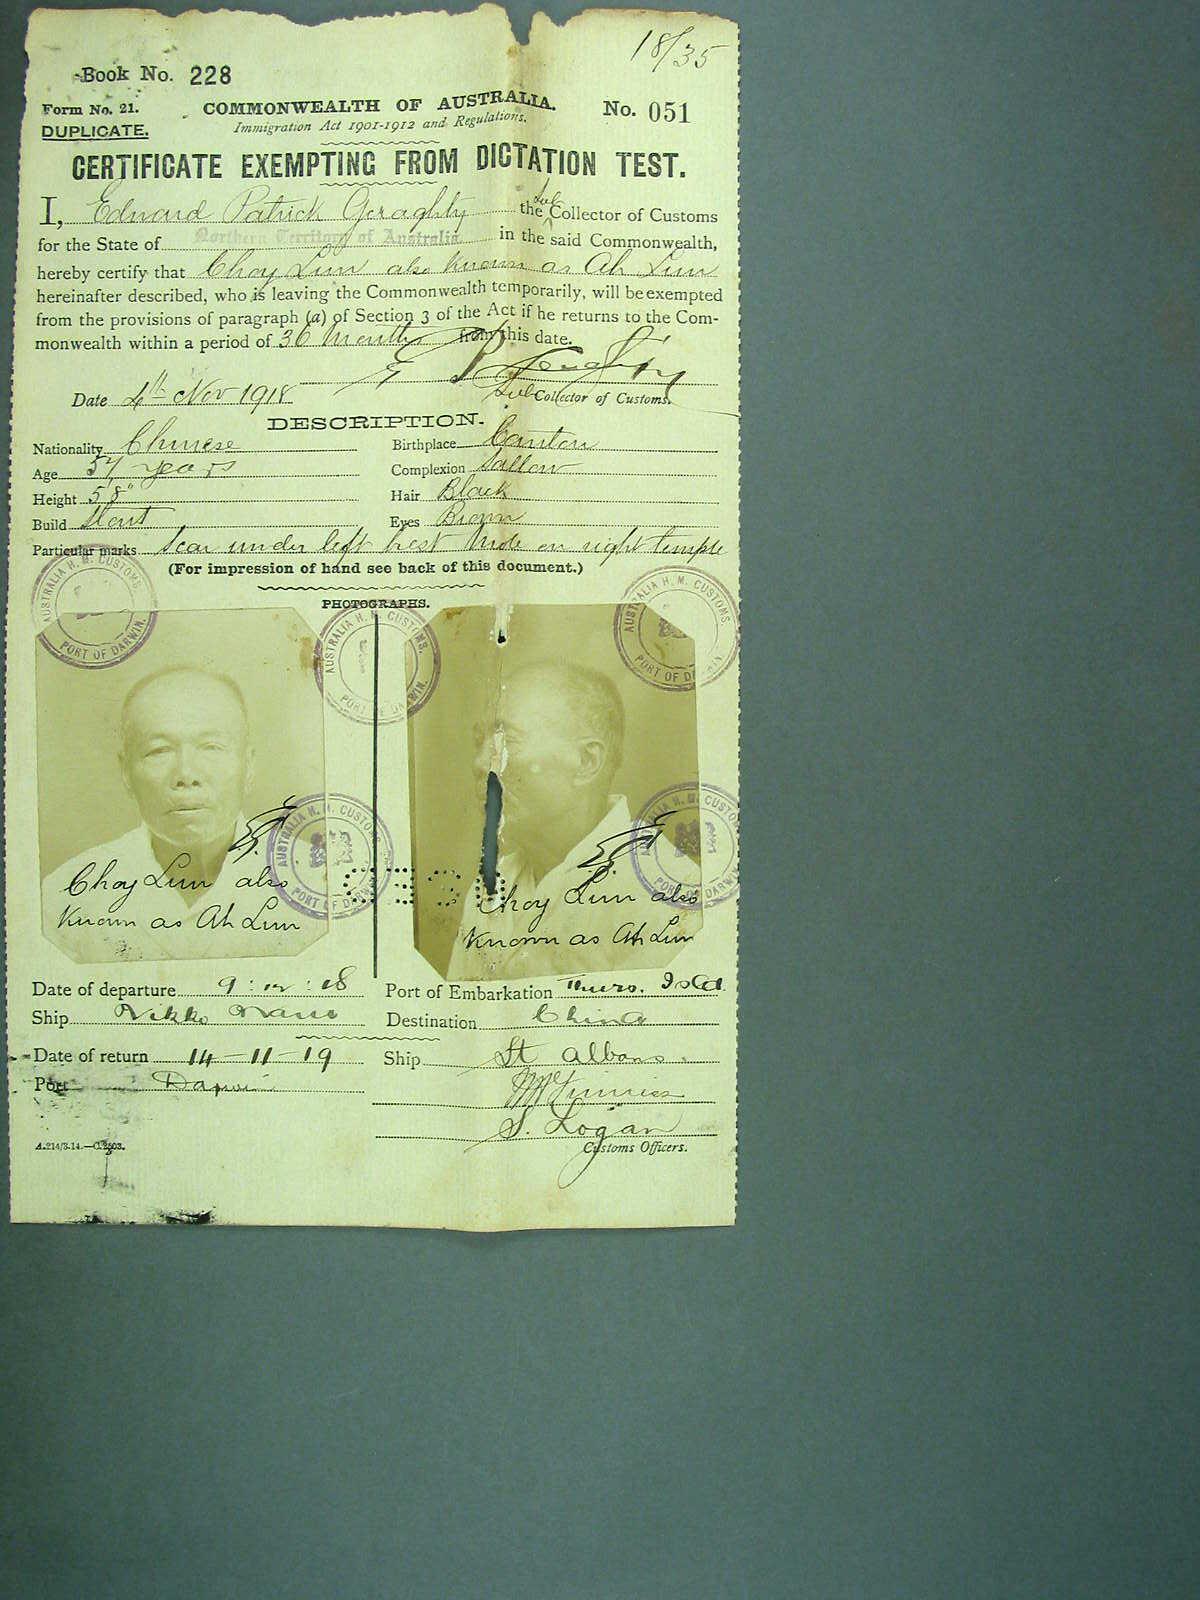 18/35
Book No. 228
Form No. 21.
COMMONWEALTH OF AUSTRALIA.
No. 051
DUPLICATE.
Immigration Act 1901-1912 and Regulations.
CERTIFICATE EXEMPTING FROM DICTATION TEST.
I, Edward Patrick Geraghty the Sub Collector of Customs
for the State of Northern Territory of Australia in the said Commonwealth,
hereby certify that Choy Lun also known as Ah Lun
hereinafter described, who is leaving the Commonwealth temporarily, will be exempted
from the provisions of paragraph (a) of Section 3 of the Act if he returns to the Com-
monwealth within a period of 36 Months from this date.
E P Geraghty
Date 4th Nov 1918
Sub Collector of Customs.
DESCRIPTION.
Nationality Chinese Birthplace Canton
Age 57 years Complexion Sallow
Height 5 8" Hair Black
Build Stout Eyes Brown
Particular marks Scar under left brest Mole on right temple
(For impression of hand see back of this document.)
PHOTOGRAPHS.
AUSTRALIA H. M. CUSTOMS. PORT OF DARWIN.
AUSTRALIA H. M. CUSTOMS. PORT OF DARWIN.
AUSTRALIA H. M. CUSTOMS. PORT OF DARWIN.
AUSTRALIA H. M. CUSTOMS. PORT OF DARWIN.
AUSTRALIA H. M. CUSTOMS. PORT OF DARWIN.
Choy Lun also
known as Ah Lun
Choy Lun also
known as Ah Lun
Date of departure 9 : 12 : 18 Port of Embarkation Thurs. Isld
Ship Nikko Maru Destination China
Date of return 14-11-19 Ship St Albans
Port Darwin
S. Logan
Customs Officers.
A.214/3.14.—C.2503.